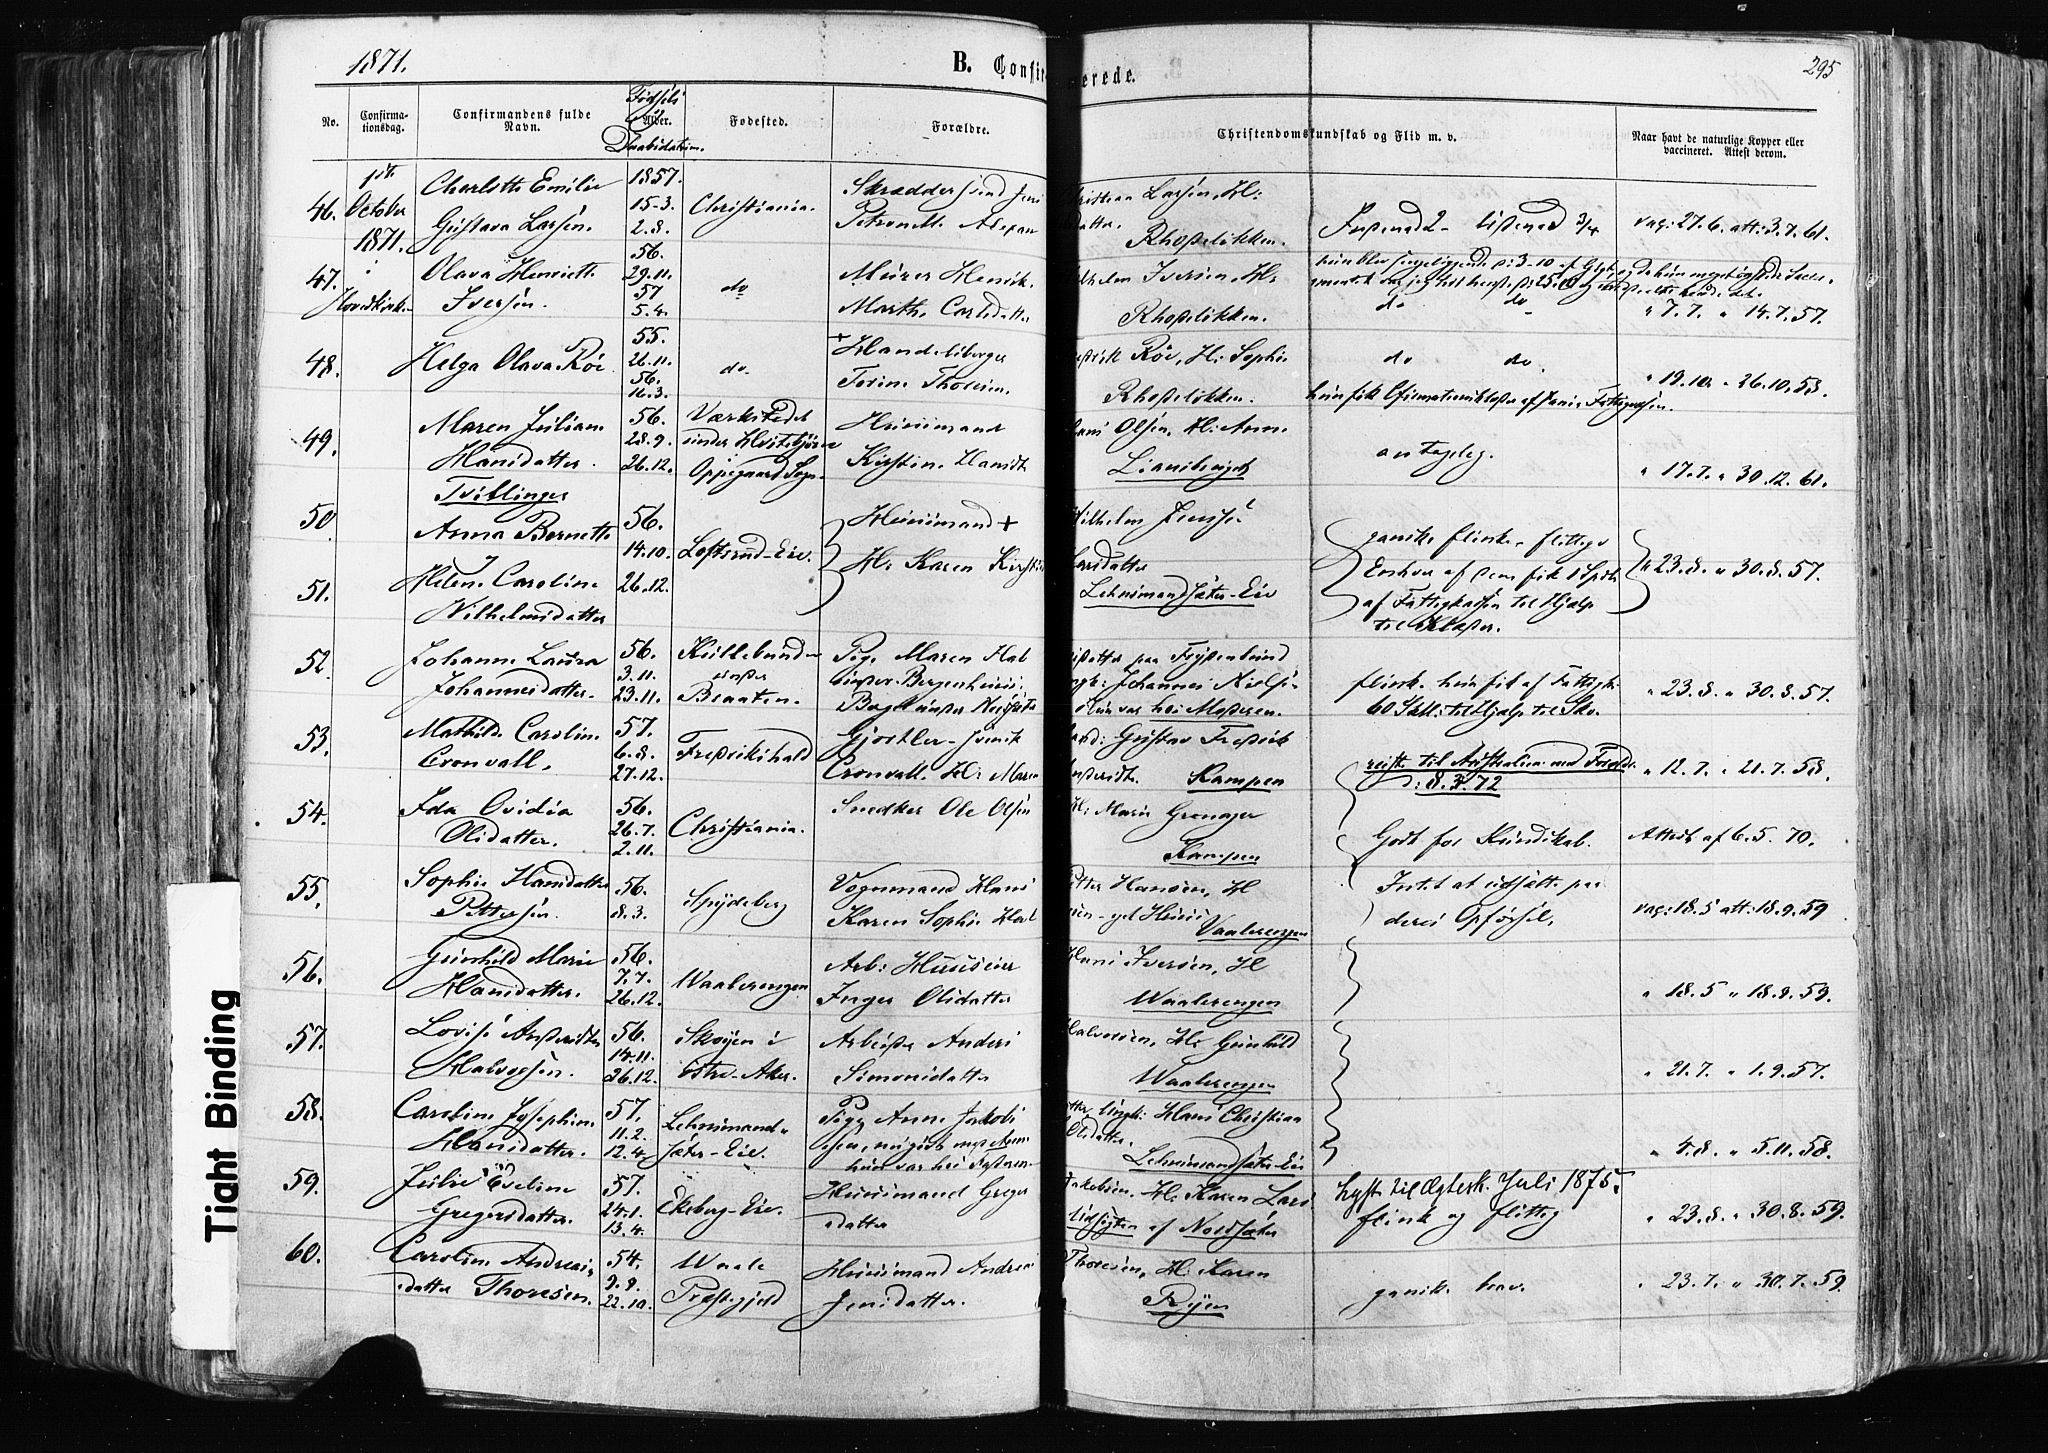 1871.
B. Confir
merede.
295
No.
Confirma-
tionsdag.
Confirmandens fulde
Navn.
Fødsels
Alder.
Daabsdatum.
Fødested.
Forældre.
Christendomskundskab og Flid m. v.
Naar havt de naturlige Kopper eller
vaccineret. Attest derom.
46.
1ste
October
1871.
i
Charlotte Emilie
Gustava Larsen.
1857.
15-3.
2.8.
Christiania.
Skrædder
Petronelle
Christian Larsen, H:
datter.
Rhodeløkken.
vac: 27.6. att: 3.7.61.
47.
Hovedkirken
Olava Henriette
Iversen.
56.
29.11.
57
5.4.
do
Murer Henrik
Marthe Carlsdatter
Iversen, H:
Rhodeløkken.
do do
" 7.7. " 14.7.57.
48.
Helga Olava Röe
55.
26.11.
56.
16.3.
do.
+
Handelsborger
Thoresen.
Röe, H: Sophie
Rhodeløkken.
do do.
hun fik
" 19.10. " 26.10.58.
49.
Maren Juliane
Hansdatter.
56.
28.9.
26.12.
Værkstedet
under Hvitebjørn
Oppegaard Sogn.
Huusmand
Kirstine Hansdt
Olsen, H: Anne
Liansberget
antagelig.
" 17.7. " 30.12.61.
Tvillinger
50
Anna Bernette
56.
14.10.
Loftsrud-Eie.
Huusmand +
H: Karen Kirstine
Wilhelm Jensen
Larsdatter
ganske flinke, flittige
51.
Helene Caroline
Wilhelmsdatter
26.12.
Lehnsmandsæter-Eie
Enhver af dem fik 1 Spd:
af Fattigkassen til Hjælp
til Klæder.
" 23.8. " 30.8.57.
52.
Johanne Laura
Johannesdatter.
56.
3.11.
23.11.
Kullebunden
under
Braaten.
Pige Maren Hal
under
paa
Johannes Nielsen
hun var hos Moderen.
flink. hun fik af Fattigk:
60 Skill: til Hjælp til Sko.
" 23.8. " 30.8.57.
53.
Mathilde Caroline
Cronvall.
57.
6.8.
27.12.
Fredrikshald
Gjørtler-Svend
Cronvall. H: Maren
Gustav Fredrik
Kampen
reist til Australien med Foreldr.
d: 8.3.72
" 12.7. " 21.7.58.
54.
Ida Ovidia
Olsdatter.
56.
26.7.
2.11.
Christiania.
Snedker Ole Olsen
H: Marie
Kampen
Godt for Kundskab.
Attest af 6.5.70.
55.
Sophie Hansdatter
Pettersen.
56.
8.3.
Spydeberg
Vognmand Hans
Karen Sophie
Petter Hansen, H
Vaalerengen
Intet at udsætte paa
deres Opførsel.
vac: 18.5 att: 18.9.59
56.
Gunhild Marie
Hansdatter.
56.
7.7.
26.12.
Waalerengen
Arb: Huuseier
Inger Olsdatter
Hans Iversen, H
Waalerengen
" 18.5 " 18.9.59.
57.
Lovise Andersdtr
Halvorsen.
56.
14.11.
26.12.
Skøyen i
østre-Aker.
Arbeider Anders
Simonsdatter
Halvorsen, H: Gunhild
Waalerengen
" 21.7. " 1.9.57.
58.
Caroline Josephine
Hansdatter.
57.
11.2.
12.4.
Lehnsmand-
sæter-Eie.
Pige Anne Jakobs
hun var hos
datter Ungk: Hans Christian
Olsdatter.
Lehnsmandsæter-Eie
" 4.8. " 5.11.58.
59.
Julie Eveline
Gregersdatter.
57.
24.1.
13.4.
Ekeberg-Eie.
Huusmand Greger
sdatter
Jakobsen, H: Karen Lars
af Nordsæter
Lyst til Ægtesk. Juli 1875.
flink og flittig
" 23.8. " 30.8.59.
60.
Caroline Andreas-
datter Thoresen.
54.
9.8.
22.10.
Waale
Præstegjeld
Huusmand Andreas
Jensdatter.
Thoresen, H: Karen
Ryen
ganske brav.
" 23.7. " 30.7.59.
Tight Binding